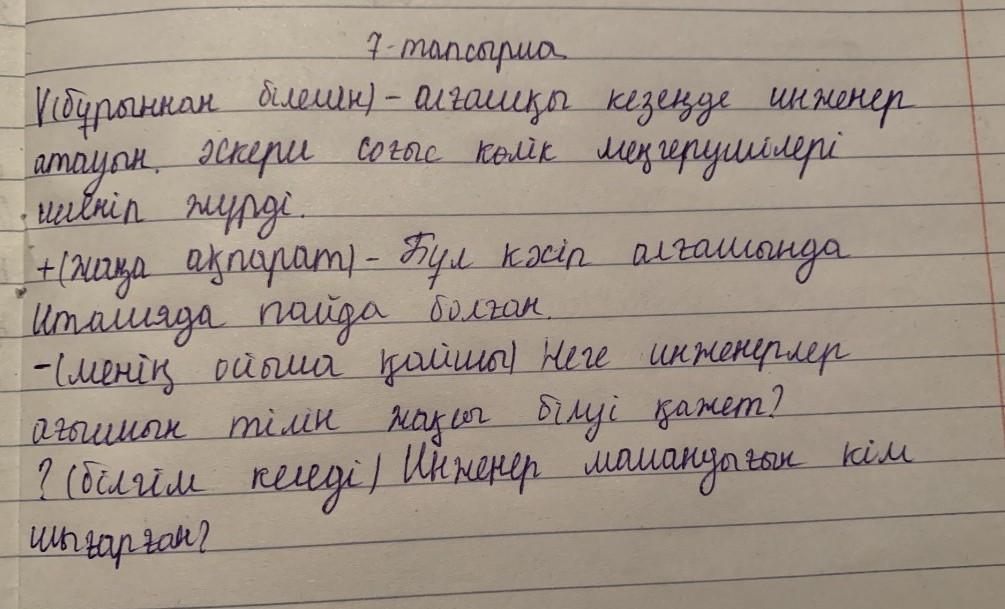 7-тапсырма
V(бұрыннан білемін) - алғашқы кезеңде инженер
атауын әскери соғыс көлік меңгерушілері
иеленіп жүрді.
+(жаңа ақпарат) - Бұл кәсіп алғашында
Италияда пайда болған.
-(менің ойыма қайшы) Неге инженерлер
ағылшын тілін жақсы білуі қажет?
? (білгім келеді) Инженер мамандығын кім
шығарған?